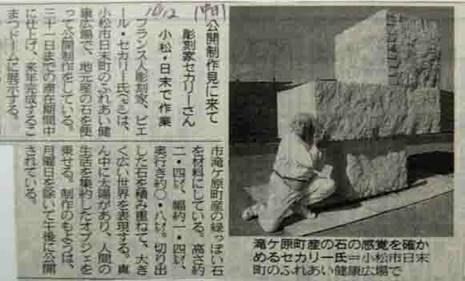 10/12 中日
公開制作見に来て
彫刻家セカリーさん
小松・日末で作業
フランス人彫刻家、ピエ
ール・セカリー氏は、
小松市日末町のふれあい健
康広場で、地元産の石を使
って公開制作をしている。
三十一日までの滞在期間中
に仕上げ、来年完成するこ
まつドームに展示する。
市滝ケ原町産の緑っぽい石
を材料にしている。高さ約
二・四㍍、幅約一・四㍍、
奥行き約〇・八㍍。切り出
した石を積み重ねて、大き
く広い世界を表現する。真
ん中に太陽があり、人間の
生活を集約したオブジェを
乗せる。制作のもようは、
月曜日を除いて午後に公開
されている。
滝ケ原町産の石の感覚を確か
めるセカリー氏＝小松市日末
町のふれあい健康広場で